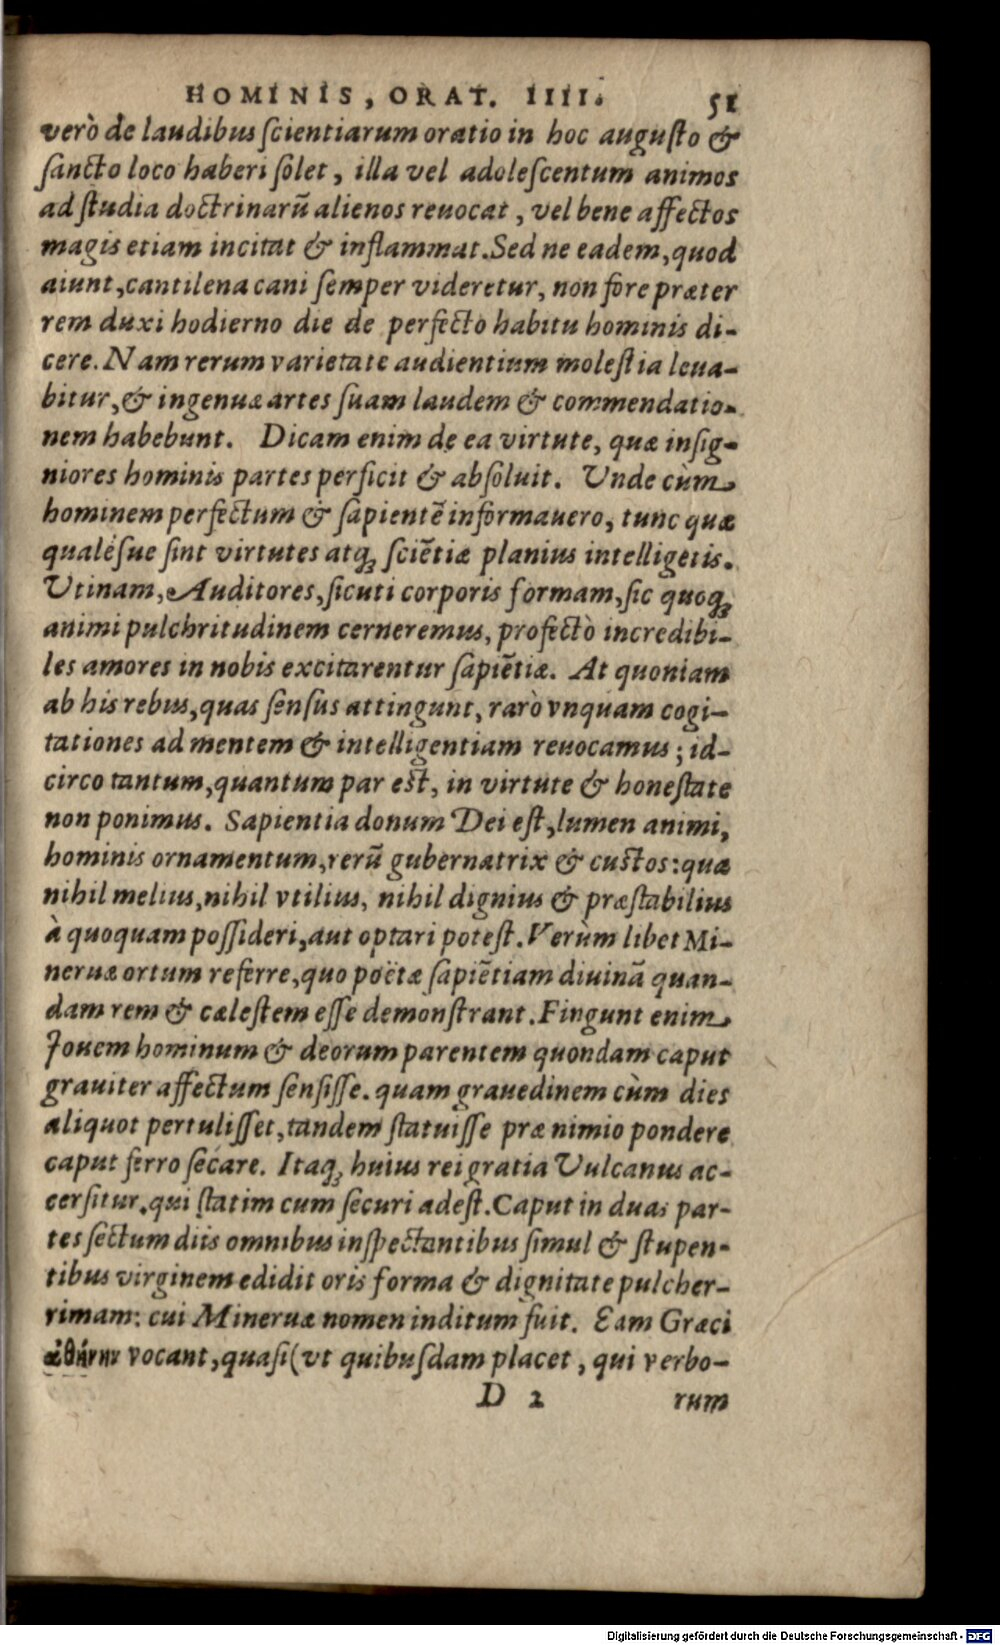 HOMINIS, ORAT. IIII. 51
verò de laudibus ſcientiarum oratio in hoc auguſto &
ſancto loco haberi ſolet, illa vel adoleſcentum animos
ad ſtudia doctrinarũ alienos reuocat, vel bene affectos
magis etiam incitat & inflammat. Sed ne eadem, quod
aiunt, cantilena cani ſemper videretur, non fore præter
rem duxi hodierno die de perfecto habitu hominis di-
cere. Nam rerum varietate audientium moleſtia leua-
bitur, & ingenuæ artes ſuam laudem & commendatio-
nem habebunt. Dicam enim de ea virtute, quæ inſig-
niores hominis partes perficit & abſoluit. Unde cùm
hominem perfectum & ſapientẽ informauero, tunc quæ
qualésue ſint virtutes atq; ſciẽtiæ planius intelligetis.
Utinam, Auditores, ſicuti corporis formam, ſic quoq;
animi pulchritudinem cerneremus, profectò incredibi-
les amores in nobis excitarentur ſapiẽtiæ. At quoniam
ab his rebus, quas ſenſus attingunt, rarò vnquam cogi-
tationes ad mentem & intelligentiam reuocamus; id-
circo tantum, quantum par eſt, in virtute & honeſtate
non ponimus. Sapientia donum Dei eſt, lumen animi,
hominis ornamentum, rerũ gubernatrix & cuſtos: qua
nihil melius, nihil vtilius, nihil dignius & præſtabilius
à quoquam poſſideri, aut optari poteſt. Verùm libet Mi-
neruæ ortum referre, quo poëtæ ſapiẽtiam diuinã quan-
dam rem & cæleſtem eſſe demonſtrant. Fingunt enim
Jouem hominum & deorum parentem quondam caput
grauiter affectum ſenſiſſe. quam grauedinem cùm dies
aliquot pertuliſſet, tandem ſtatuiſſe præ nimio pondere
caput ferro ſecare. Itaq; huius rei gratia Vulcanus ac-
cerſitur. qui ſtatim cum ſecuri adeſt. Caput in duas par-
tes ſectum diis omnibus inſpectantibus ſimul & ſtupen-
tibus virginem edidit oris forma & dignitate pulcher-
rimam: cui Mineruæ nomen inditum fuit. Eam Græci
ἀθήνην vocant, quaſi (vt quibuſdam placet, qui verbo-
D 2 rum
Digitalisierung gefördert durch die Deutsche Forschungsgemeinschaft - DFG